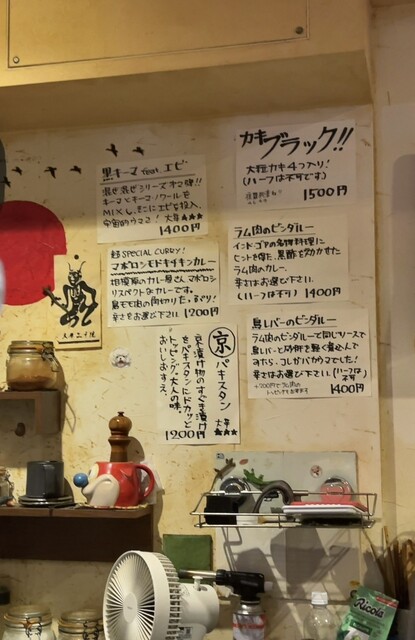 黒キーマ feat. エビ
混ぜ混ぜシリーズ オマ弾!!
キーマとキーマ・ノワールを
MIXし、そこにエビを投入。
宇宙的ウマさ! 大辛★★★
1400円
カキブラック!!
大粒カキ4つ入り!
(ハーフは不可です)
1500円
SPECIAL CURRY!
マボロシモドキチキンカレー
相模原のカレー屋さん マボロシ
リスペクトなカレーです。
鳥モモ肉の肉切りだ、まぐり!
辛さをお選び下さい。 1200円
ラム肉のビンダルー
インド・ゴアの名物料理に
ヒントを得た、黒酢を効かせた
ラム肉のカレー。
辛さはお選び下さい。
(ハーフは不可) 1400円
鳥レバーのビンダルー
ラム肉のビンダルーと同じソースで
鳥レバーと砂肝を軽く煮込んで
みたら、コレがバカウマでした!
辛さはお選び下さい。(ハーフは不可)
1400円
京パキスタン
大辛
★★★
京漬け物のすぐき漬け
をパキスタンにドカッと
トッピング。大人の味。
おいしおすえ。
1200円
Ricola